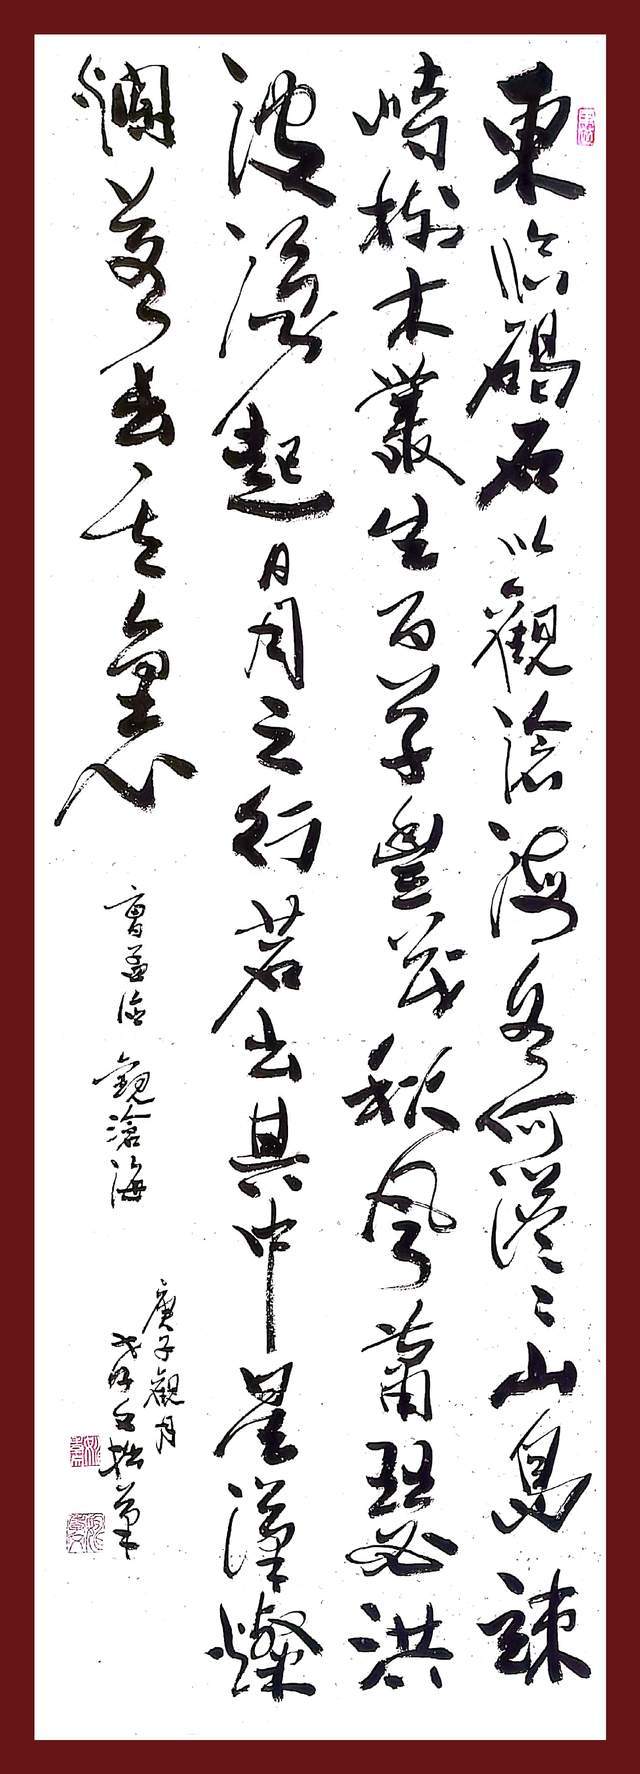 東臨碣石以觀滄海水何澹〻山島竦
峙樹木叢生百草豐茂秋風蕭瑟洪
波湧起日月之行若出其中星漢燦
爛若出其裏
曹孟德 觀滄海
庚子觀月
拙筆